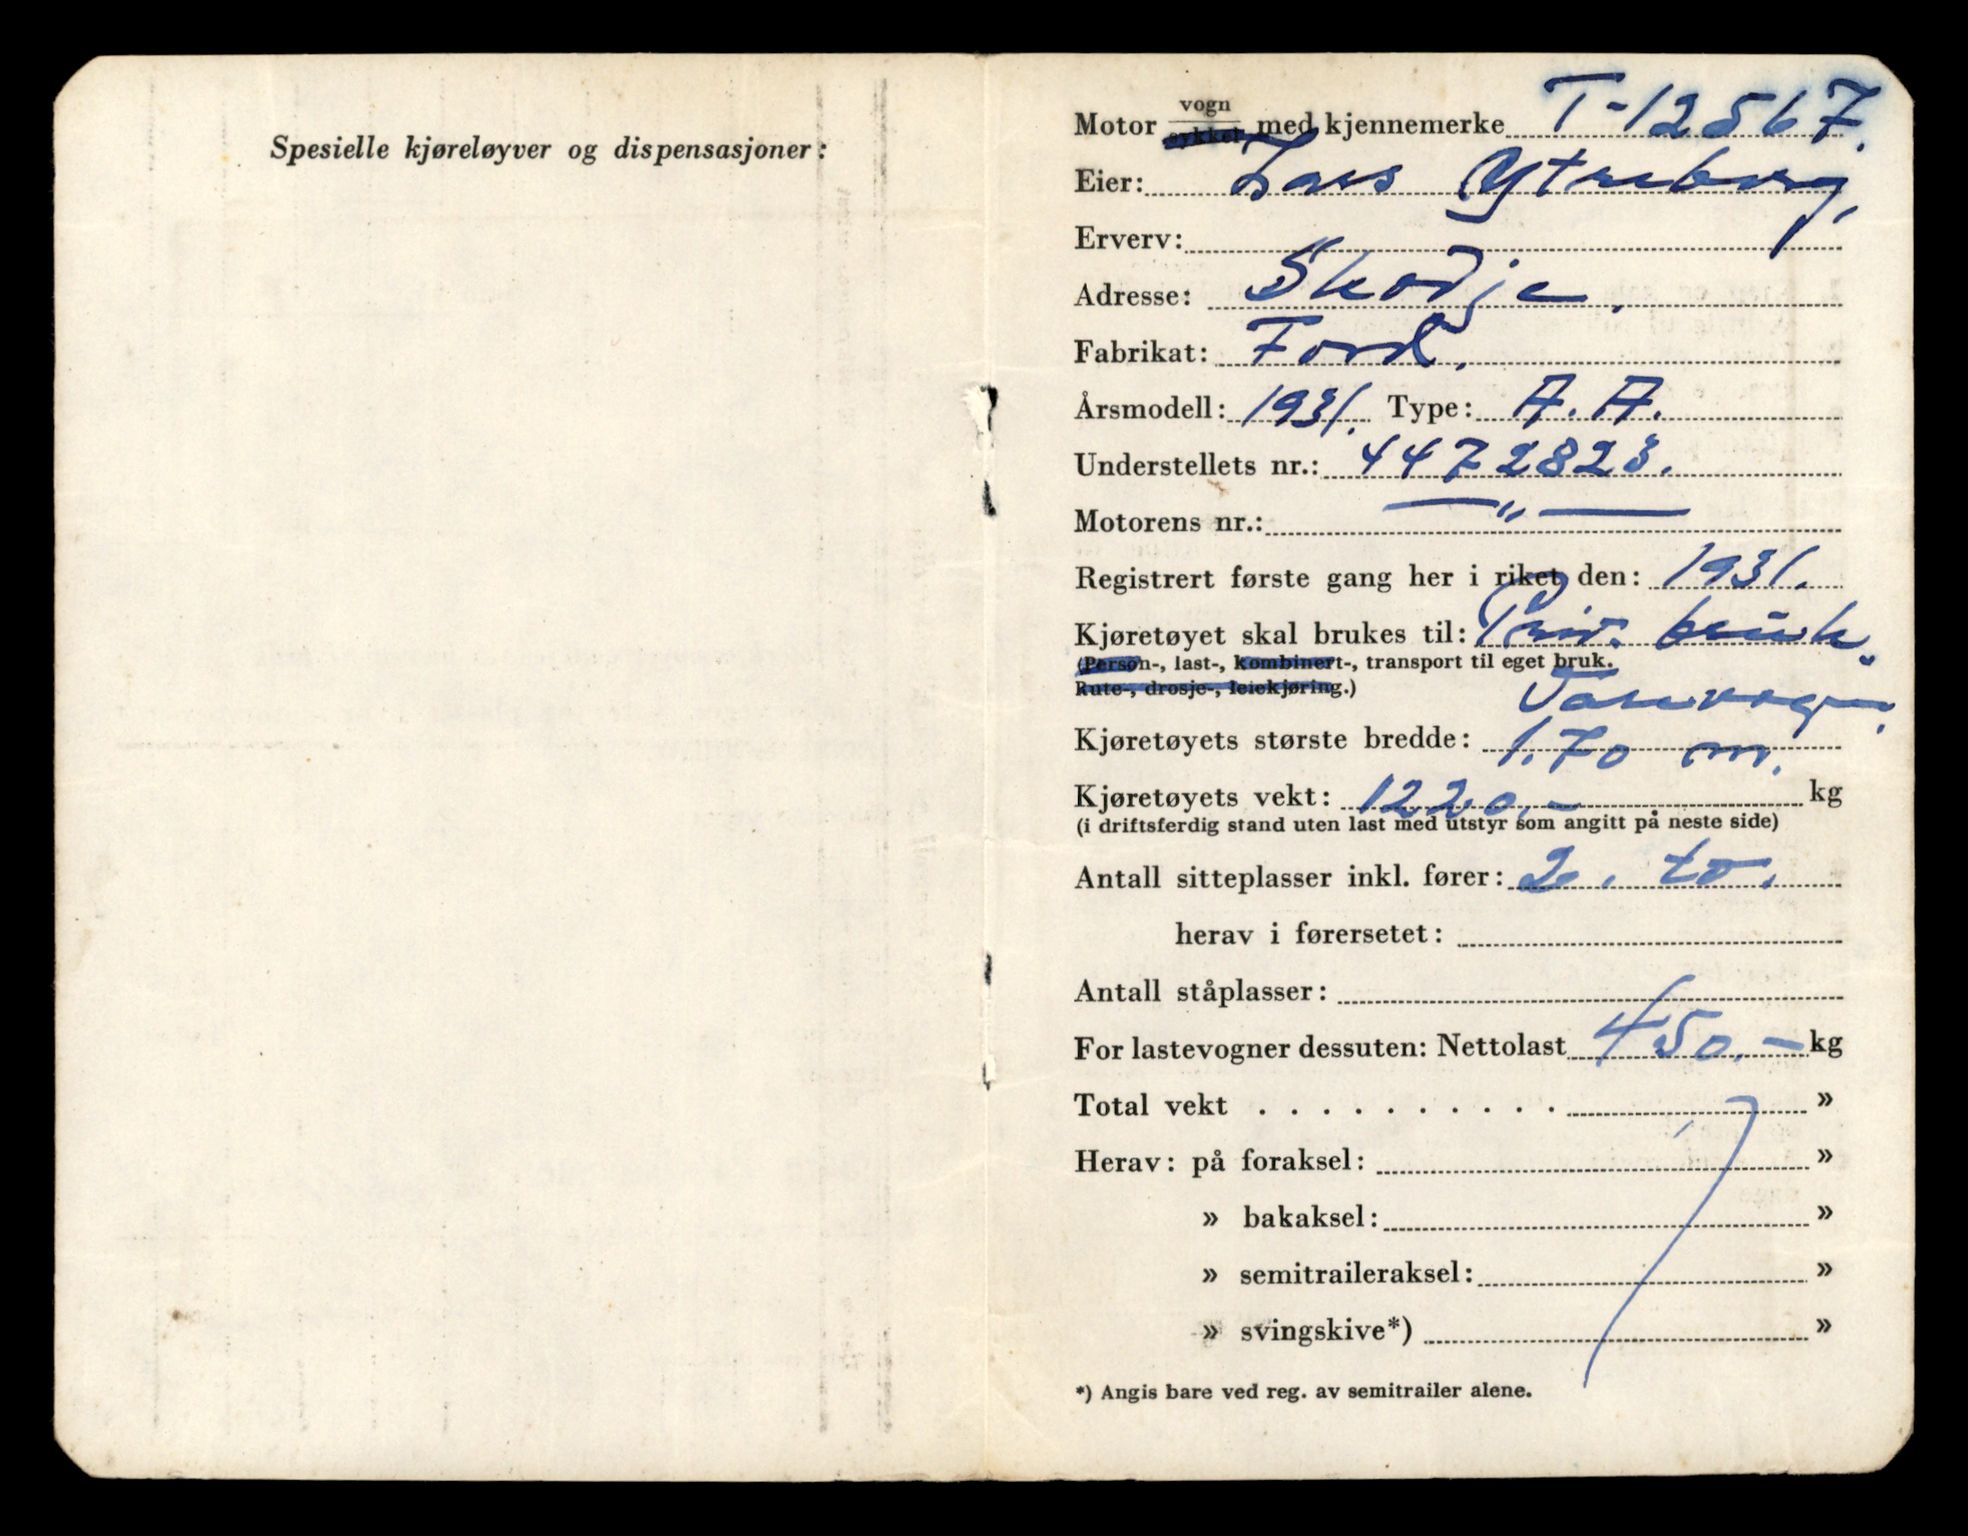 Spesielle kjøreløyver og dispensasjoner:
Motor vogn/sykkel med kjennemerke T-12567.
Eier: Lars Ytreberg,
Erverv:
Adresse: Skodje.
Fabrikat: Ford.
Årsmodell: 1931. Type: A. A.
Understellets nr.: 4472823.
Motorens nr.: — „ —
Registrert første gang her i riket den: 1931.
Kjøretøyet skal brukes til: Priv. bruk.
(Person-, last-, kombinert-, transport til eget bruk.
Rute-, drosje-, leiekjøring.)
Varevogn.
Kjøretøyets største bredde: 1.70 m.
Kjøretøyets vekt: 1220.- kg
(i driftsferdig stand uten last med utstyr som angitt på neste side)
Antall sitteplasser inkl. fører: 2. to.
herav i førersetet:
Antall ståplasser:
For lastevogner dessuten: Nettolast 450.- kg
Total vekt . . . . . . . . . . . »
Herav: på foraksel: »
» bakaksel: »
» semitraileraksel: »
» svingskive*) »
*) Angis bare ved reg. av semitrailer alene.